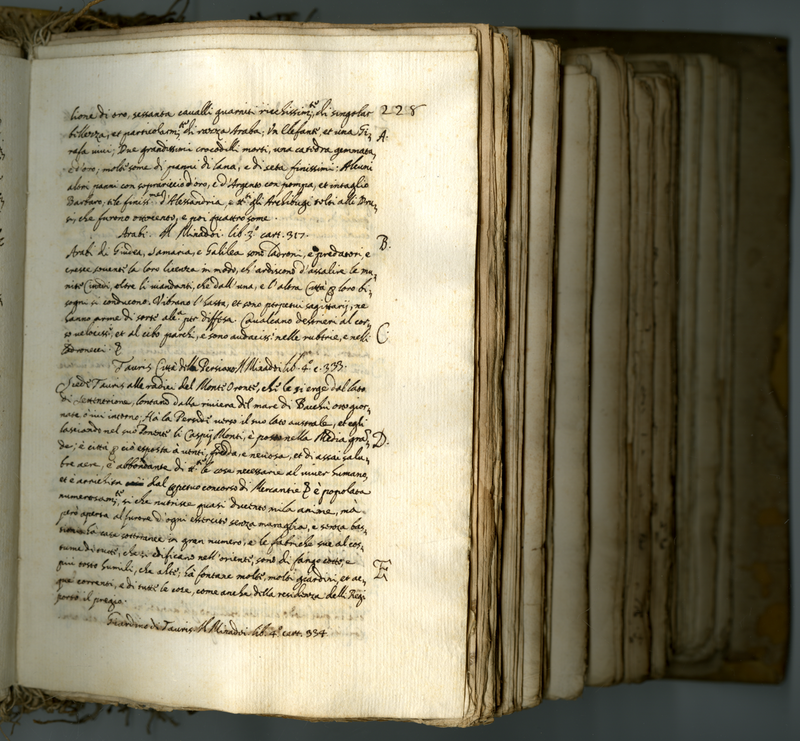 lione di oro, sessanta cavalli guarniti ricchissimte di singolar 228
bellezza, et particolarmte di razza Araba; Un Elefante, et una Gi= A.
rafa vivi; Due grandissimi crocodilli morti, una catedra gemmata,
e d'oro, molte some di panni di lana, e di seta finissimi: Alcuni
altri panni con sopraricci d'oro, e d'Argento con pompa, et intaglio
Barbaro, tele finissme d'Alessandria, e gli Archibugi tolti alli Dru=
si, che furono ottocento, e poi quattro some.
Arabi. Il Minadoi. lib. 3.º cart. 317.
Arabi di Giudea, Samaria, e Galilea sono Ladroni, e predatori, e B.
cresce sovente la loro licenza in modo, ch'ardiscono d'assalire le mu=
nite Cinevi, oltre li viandanti, che dall'una, e l'altra Città p loro bi=
sogni si conducono. Vibrano l'hasta, et sono perpetui sagittarij, ne
hanno arme di sorte alca per diffesa. Cavalcano destrieri al cor=
so velocissi, et al cibo parchi, e sono audacissi nelle rubbrie, e nelli C
ladronecci.
Tauris Città della Persiana Il Minadoi lib. 4.º c. 333.
Siede Tauris alle radici del Monte Oronte, che le si erge dal lato
di Settentrione, lontano dalla riviera del mare di Bacchù otto gior=
nate ò ivi intorno. Hà la Perside verso il suo lato australe, et egli
lasciando nel suo Ponente li Caspij Monti, è posto nella Media gran= D.
de; è città p ciò esposta à venti, fredda, e nevosa, et di assai salu=
bre aere, è abbondante di tte le cose necessarie al viver humano,
et è arrichita dal ppetuo concorso di Mercantie p è popolata
numerosamte, si che nutrisce quasi ducento mila anime, mà
però aperta al furore d'ogni essercito senza muraglia, e senza bas=
tioni hà case sotterranee in gran numero, e le fabriche sue al cos=
tume di tutte, che si edificano nell'oriente, sono di fango cotto, e
più tosto humili, che alte, hà fontane molte, molti giardini, et ac= E
que correnti, e di tutte le cose, come anche della residenza delli Regi
porta il pregio.
Giardino di Tauris Il Minadoi lib. 4.º cart. 334